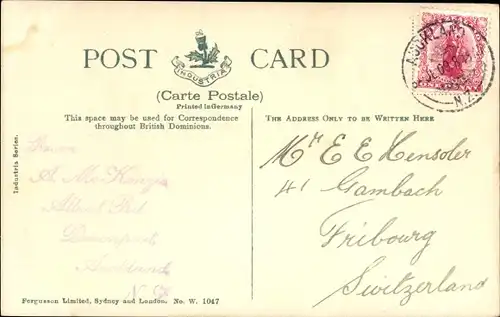 POST CARD
INDUSTRIA
(Carte Postale)
Printed in Germany
This space may be used for Correspondence
throughout British Dominions.
THE ADDRESS ONLY TO BE WRITTEN HERE
Industria Series.
From
A. McKenzie
Albert Rd
Devonport
Auckland
N.Z.
Mr E E Hensoler
41 Gambach
Fribourg
Switzerland
AUCKLAND
N.Z.
Fergusson Limited, Sydney and London. No. W. 1047